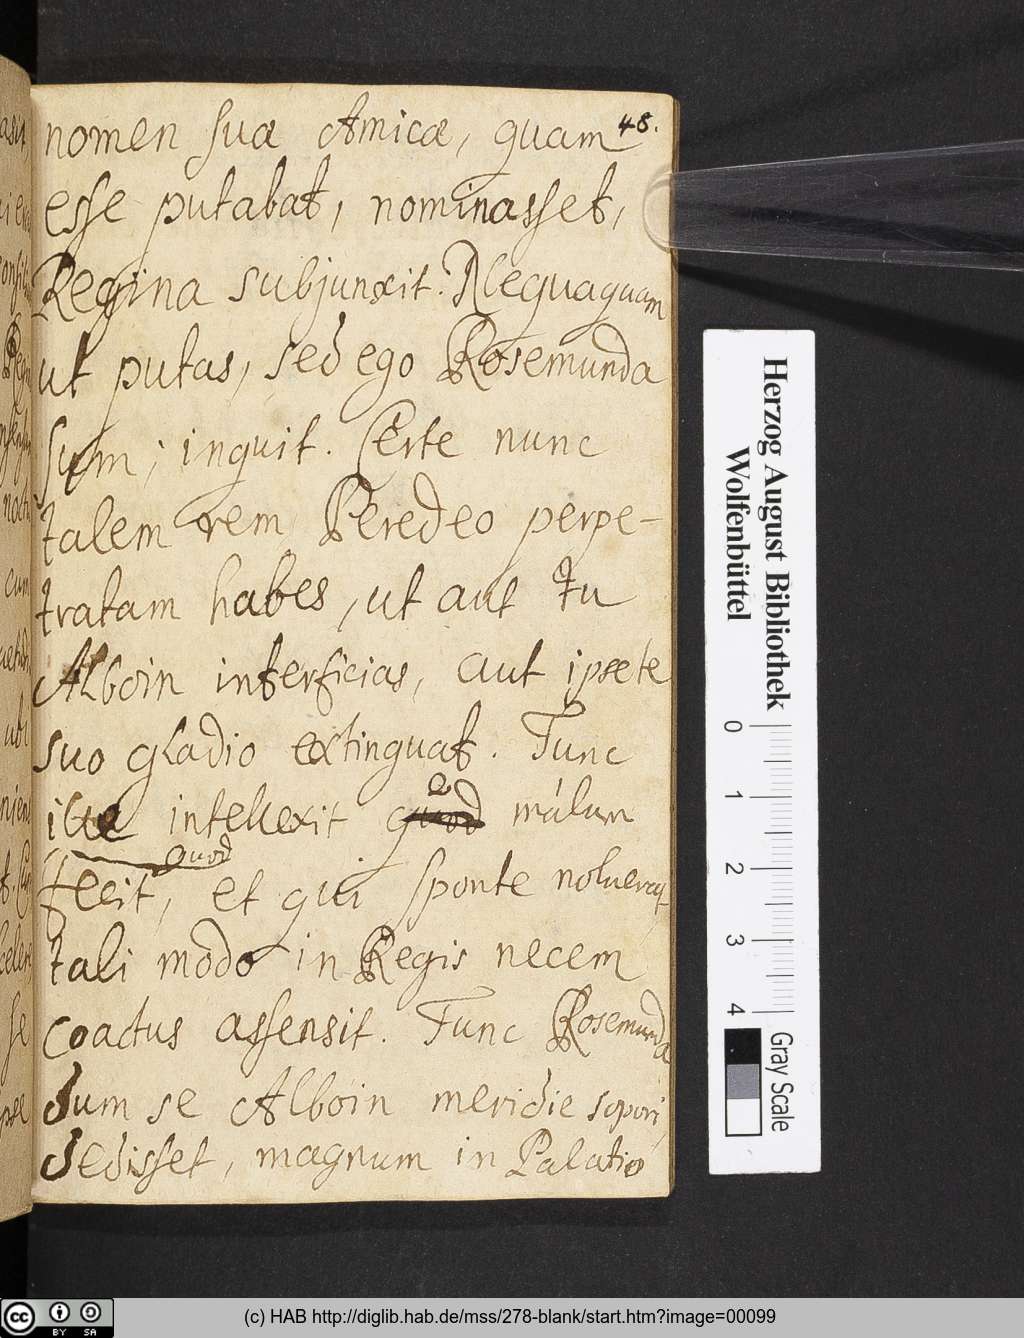 48.
nomen suæ Amicæ, quam
esse putabat, nominasset,
Regina subjunxit. Nequaquam
ut putas, sed ego Rosemunda
sum, inquit. Certe nunc
talem rem Peredeo perpe-
tratam habes, ut aut tu
Alboin interficias, aut ipse te
suo gladio extinguat. Tunc
ille intellexit malum
quod
fecit, et qui sponte noluerat
tali modo in Regis necem
coactus assensit. Tunc Rosemunda
dum se Alboin meridie sopori
dedisset, magnum in Palatio
Herzog August Bibliothek
Wolfenbüttel
0 1 2 3 4
Gray Scale
cc BY SA
(c) HAB http://diglib.hab.de/mss/278-blank/start.htm?image=00099